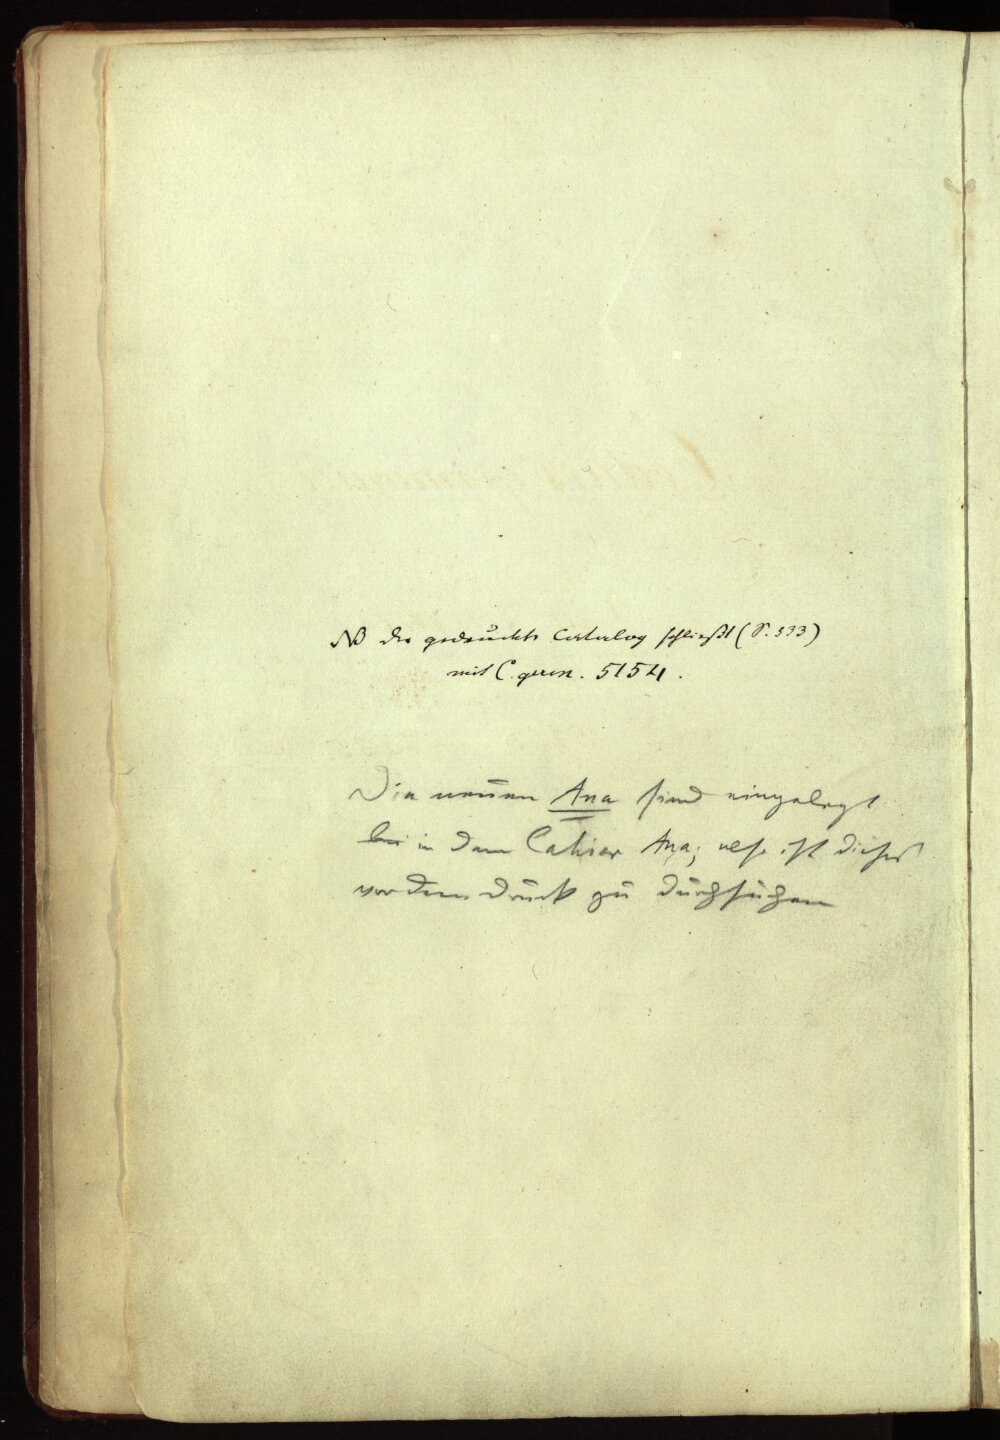 NB der gedruckte Catalog schließt (S. 593)
mit C. germ. 5154.
Die neuen Ana sind eingelegt
in dem Cahier Ana; also ist dieses
vor dem Druck zu durchsuchen